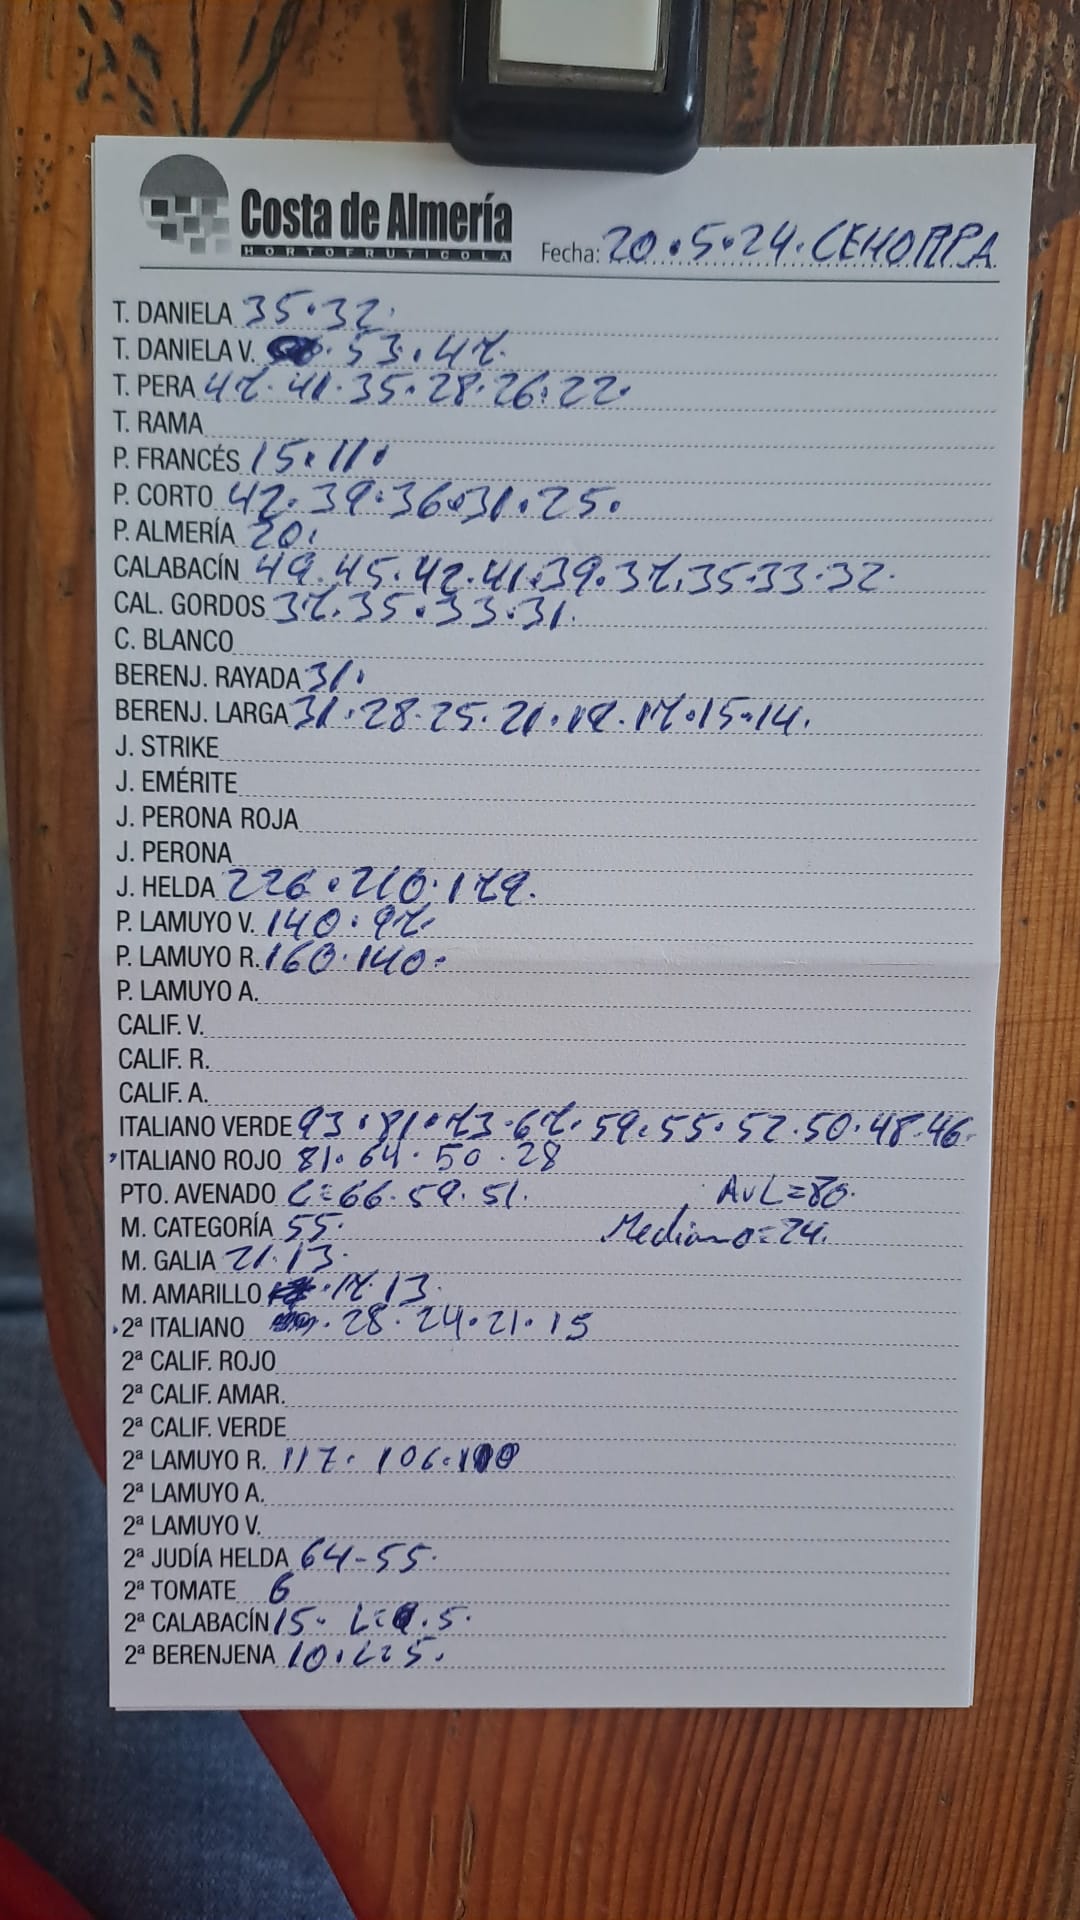 Costa de Almería
HORTOFRUTICOLA
Fecha: 20.5.24. CEHORPA
T. DANIELA 35.32.
T. DANIELA V. 53.47.
T. PERA 47.41.35.28.26.22.
T. RAMA
P. FRANCÉS 15.11.
P. CORTO 42.39.36.31.25.
P. ALMERÍA 20.
CALABACÍN 49.45.42.41.39.37.35.33.32.
CAL. GORDOS 37.35.33.31.
C. BLANCO
BERENJ. RAYADA 31.
BERENJ. LARGA 31.28.25.21.19.17.15.14.
J. STRIKE
J. EMÉRITE
J. PERONA ROJA
J. PERONA
J. HELDA 226.210.179.
P. LAMUYO V. 140.97.
P. LAMUYO R. 160.140.
P. LAMUYO A.
CALIF. V.
CALIF. R.
CALIF. A.
ITALIANO VERDE 93.81.73.67.59.55.52.50.48.46.
ITALIANO ROJO 81.64.50.28
PTO. AVENADO C=66.59.51. AvL=80.
M. CATEGORÍA 55. Mediano=24.
M. GALIA 21.13.
M. AMARILLO 17.13.
2ª ITALIANO 28.24.21.15
2ª CALIF. ROJO
2ª CALIF. AMAR.
2ª CALIF. VERDE
2ª LAMUYO R. 117.106.100
2ª LAMUYO A.
2ª LAMUYO V.
2ª JUDÍA HELDA 64-55.
2ª TOMATE 6
2ª CALABACÍN 15. L= .5.
2ª BERENJENA 10.L=5.